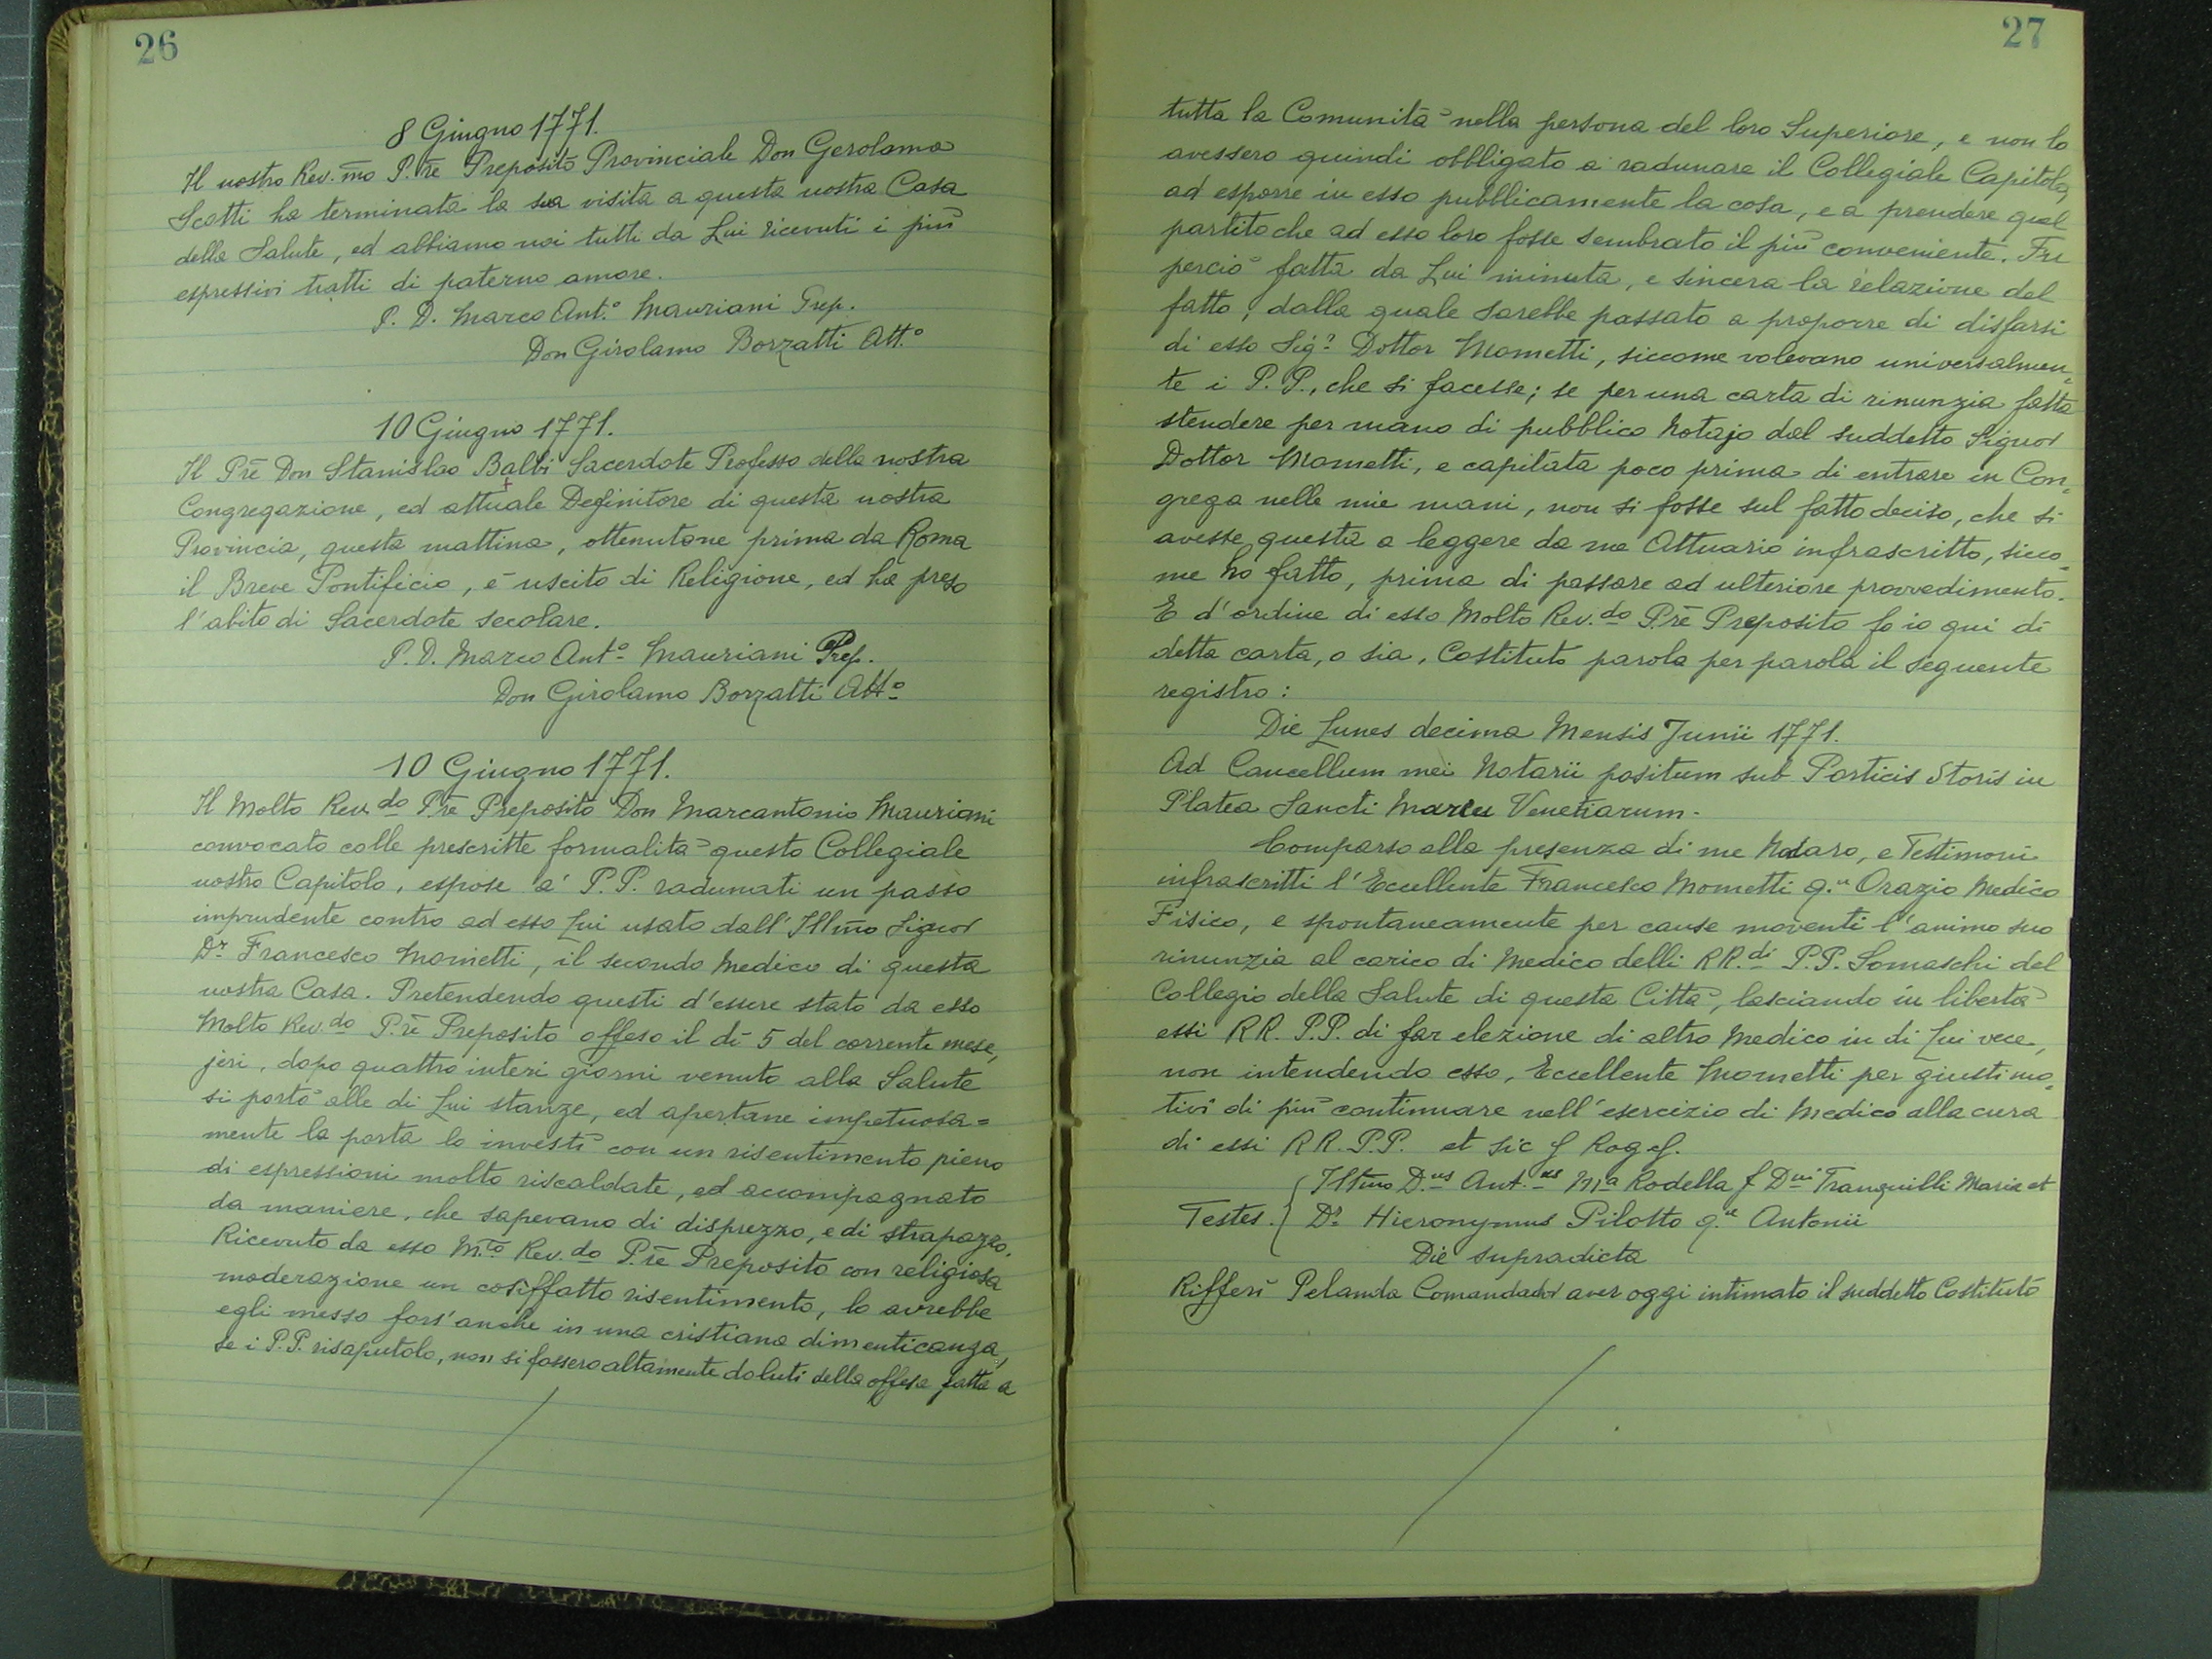 26
8 Giugno 1771.
Il nostro Rev.mo P.re Preposito Provinciale Don Gerolamo
Scotti ha terminata la sua visita a questa nostra Casa
della Salute, ed abbiamo noi tutti da Lui ricevuti i più
espressivi tratti di paterno amore.
P. D. Marco Ant.o Mauriani Prep.
Don Girolamo Borzatti Att.o
10 Giugno 1771.
Il Pre Don Stanislao Balbi Sacerdote Professo della nostra
Congregazione, ed attuale Definitore di questa nostra
Provincia, questa mattina, ottenutone prima da Roma
il Breve Pontificio, è uscito di Religione, ed ha preso
l'abito di Sacerdote secolare.
P. D. Marco Ant.o Mauriani Prep.
Don Girolamo Borzatti Att.o
10 Giugno 1771.
Il Molto Rev.do P.re Preposito Don Marcantonio Mauriani
convocato colle prescritte formalità questo Collegiale
nostro Capitolo, espose a' P. P. radunati un passo
imprudente contro ad esso Lui usato dall'Illmo Signor
Dr Francesco Mometti, il secondo Medico di questa
nostra Casa. Pretendendo questi d'essere stato da esso
Molto Rev.do P.re Preposito offeso il dì 5 del corrente mese,
jeri, dopo quattro interi giorni venuto alla Salute
si portò alle di Lui stanze, ed apertane impetuosa=
mente la porta lo investì con un risentimento pieno
di espressioni molto riscaldate, ed accompagnato
da maniere, che sapevano di disprezzo, e di strapazzo.
Ricevuto da esso M.to Rev.do P.re Preposito con religiosa
moderazione un cosiffatto risentimento, lo avrebbe
egli messo fors'anche in una cristiana dimenticanza,
se i P.P. risaputolo, non si fossero altamente doluti della offesa fatta a
27
tutta la Comunità nella persona del loro Superiore, e non lo
avessero quindi obbligato a radunare il Collegiale Capitolo,
ad esporre in esso pubblicamente la cosa, e a prendere quel
partito che ad esso loro fosse sembrato il più conveniente. Fu
perciò fatta da Lui minuta, e sincera la relazione del
fatto, dalla quale sarebbe passato a proporre di disfarsi
di esso Sig.r Dottor Mometti, siccome volevano universalmen=
te i P. P., che si facesse; se per una carta di rinunzia fatta
stendere per mano di pubblico Notajo dal suddetto Signor
Dottor Mometti, e capitata poco prima di entrare in Con=
grega nelle mie mani, non si fosse sul fatto deciso, che si
avesse questa a leggere da me Attuario infrascritto, sicco=
me ho fatto, prima di passare ad ulteriore provvedimento.
E d'ordine di esso Molto Rev.do P.re Preposito fo io qui di
detta carta, o sia, Costituto parola per parola il seguente
registro:
Die Lunes decima Mensis Junii 1771.
Ad Cancellum mei Notarii positum sub Porticis Storis in
Platea Sancti Marci Venetiarum.
Comparso alla presenza di me Nodaro, e Testimoni
infrascritti l'Eccellente Francesco Mometti q.m Orazio Medico
Fisico, e spontaneamente per cause moventi l'animo suo
rinunzia al carico di Medico delli RR.di P.P. Somaschi del
Collegio della Salute di questa Città, lasciando in libertà
essi RR. P.P. di far elezione di altro Medico in di Lui vece,
non intendendo esso, Eccellente Mometti per giusti mo=
tivi di più continuare nell'esercizio di Medico alla cura
di essi RR. P.P. et sic f Rog f.
Illmo D.us Ant.us Ma Rodella f Dni Tranquilli Mariæ et
Testes. { Dr Hieronymus Pilotto q.m Antonii
Die supradicta
Rifferì Pelanda Comandador aver oggi intimato il suddetto Costituto